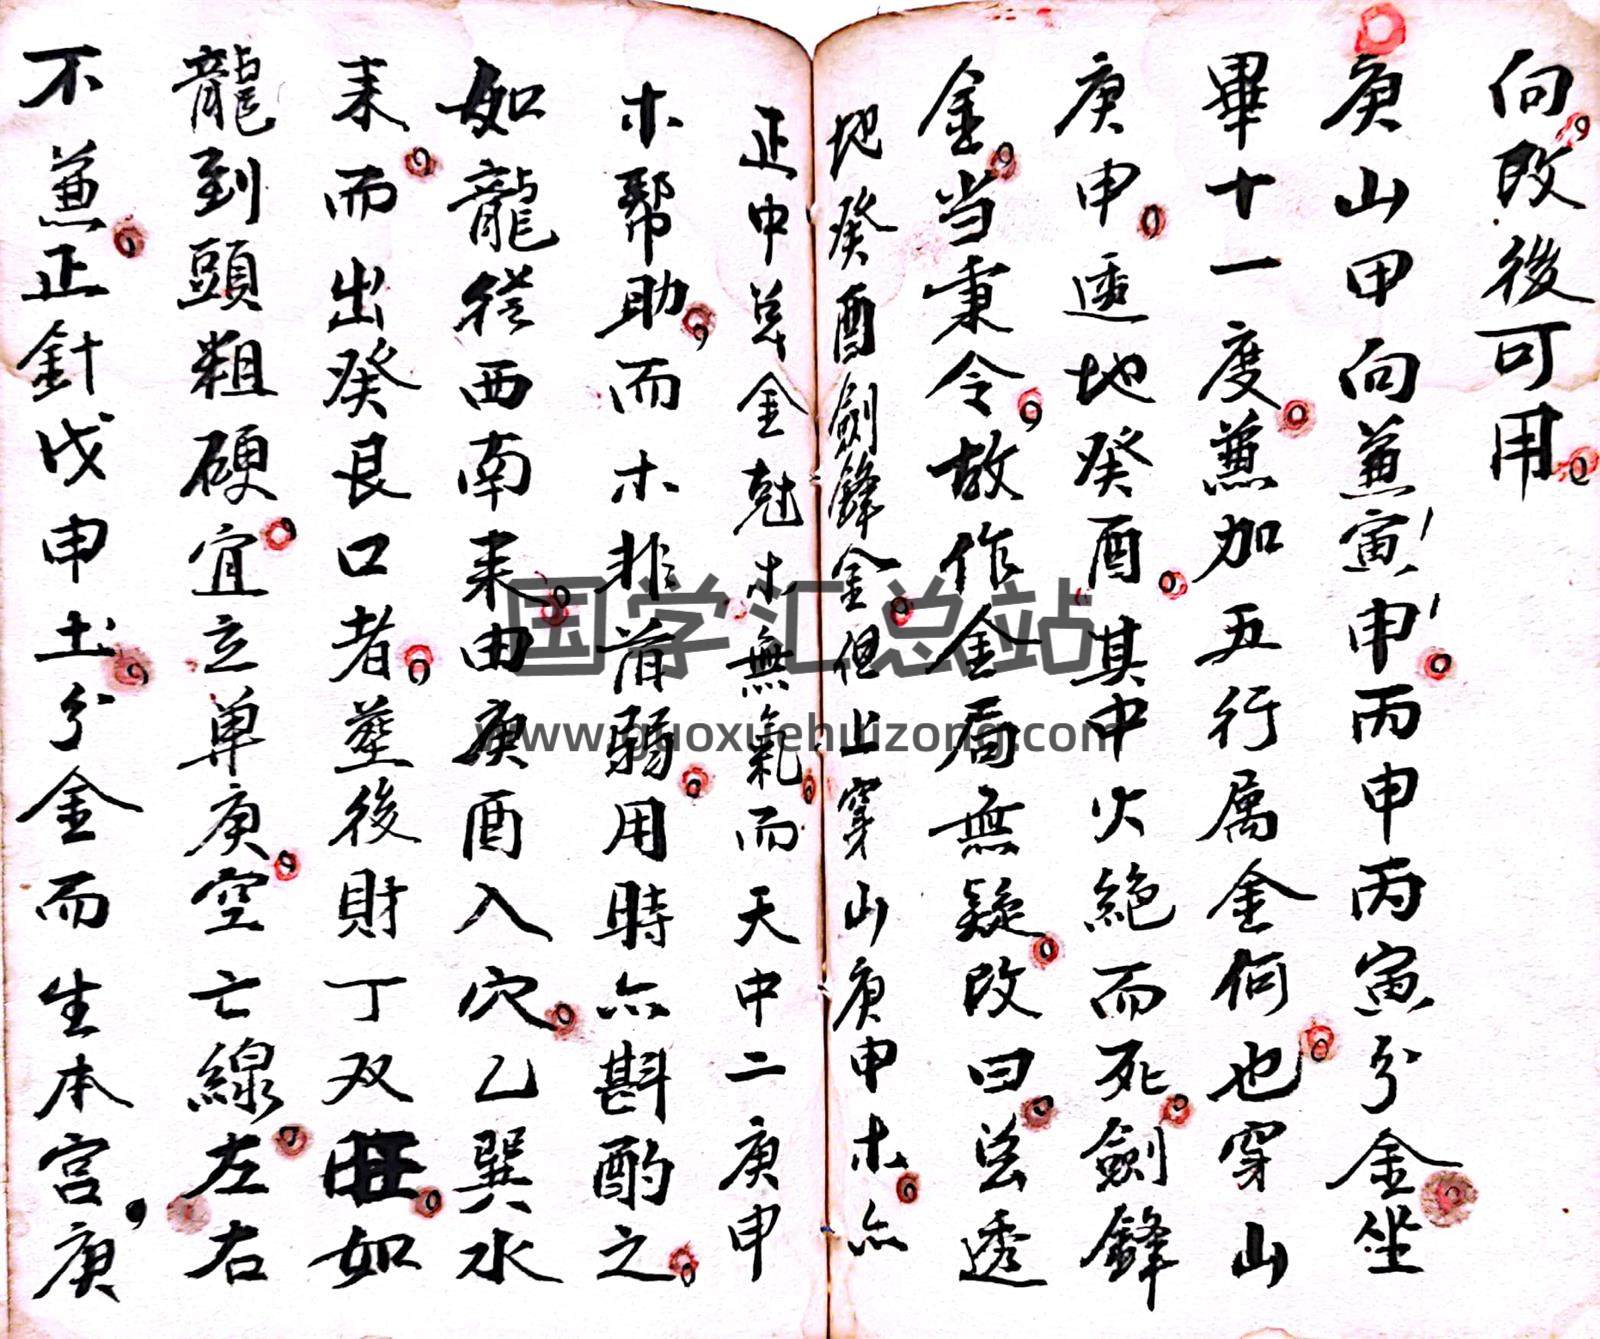 向改後可用
庚山甲向兼寅申丙申丙寅分金坐
畢十一度兼加五行属金何也穿山
庚申透地癸酉其中火絶而死劍鋒
金当秉令故作金局無疑改曰总透
地癸酉劍鋒金但上穿山庚申木亦
延申总金尅木無氣而天中二庚申
木幫助而木非首弱用時亦斟酌之
如龍従西南来由庚酉入穴乙巽水
来而出癸艮口者塟後財丁双旺如
龍到頭粗硬宜立单庚空亡線左右
不兼正針戊申土分金而生本宫庚
国学汇总站
www.guoxuehuizong.com